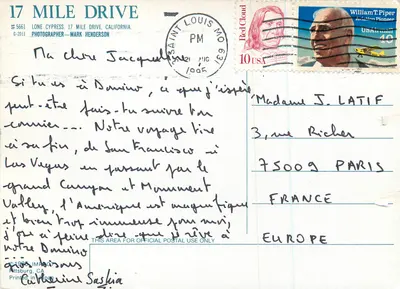 17 MILE DRIVE
5661 LONE CYPRESS, 17 MILE DRIVE, CALIFORNIA
PHOTOGRAPHER - MARK HENDERSON
SAINT LOUIS MO 631
PM
1995
Red Cloud
10 USA
William T. Piper
Aviation Pioneer
USAirmail
Ma chère Jacqueline,
Si tu es à Domino, ce que j'espère
peut-être fais-tu suivre ton
courrier... Notre voyage tire
à sa fin, de San Francisco à
Las Vegas en passant par le
grand Canyon et Monument
Valley, l'Amérique est magnifique
et bien trop immense pour moi,
j'ose à peine dire que je rêve à
notre Domino
gros bisous
Catherine Saskia
Madame J. LATIF
3, rue Richer
75009 PARIS
FRANCE
EUROPE
THIS AREA FOR OFFICIAL POSTAL USE ONLY